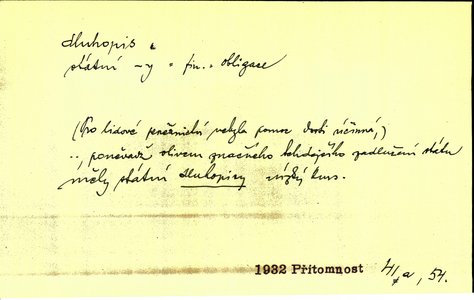 dluhopis
státní -y = fin. = obligace
(Pro lidové peněžnictví nebyla pomoc dosti účinná,)
.., poněvadž vlivem značného tehdejšího zadlužení státu
měly státní dluhopisy nízký kurs.
1932 Přítomnost 41/a, 54.